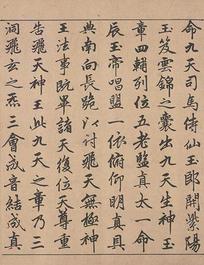 命九天司馬侍仙玉郎開紫陽
玉笈雲錦之囊出九天生神玉
章四輔列位五老監真太一命
辰玉帝唱盟一依俯仰明真具
典南向長跪以付飛天無極神
王法事既畢諸天復位天尊重
告飛天神王此九天之章乃三
洞飛玄之炁三會成音結成真